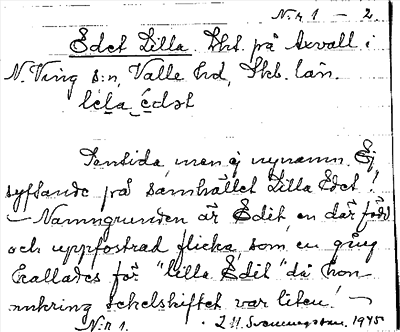 N:r 1 – 2.
Edet Lilla. Tht. på Axvall i
N. Ving s:n, Valle hd, Skb. län.
lɩ́ɛla ɛ́dət
Sentida, men ej nynamn. Ej
syftande på samhället Lilla Edet!
– Namngrunden är Edit, en där född
och uppfostrad flicka, som en gång
kallades för "lilla Edit" då hon
omkring sekelskiftet var liten! –
N:r 1. 1945